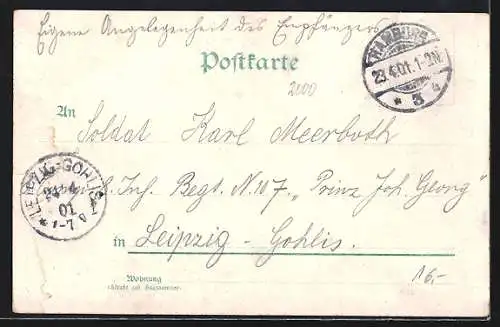 Eigene Angelegenheit des Empfängers
HAMBURG
23.4.01. 1-2N.
* 3 *
Postkarte
2000
An
Soldat Karl Meerboth
LEIPZIG-GOHLIS
01
1-7
Inf. Regt. N. 107. „Prinz Joh. Georg"
in Leipzig-Gohlis.
16.-
Wohnung
(Straße und Hausnummer)